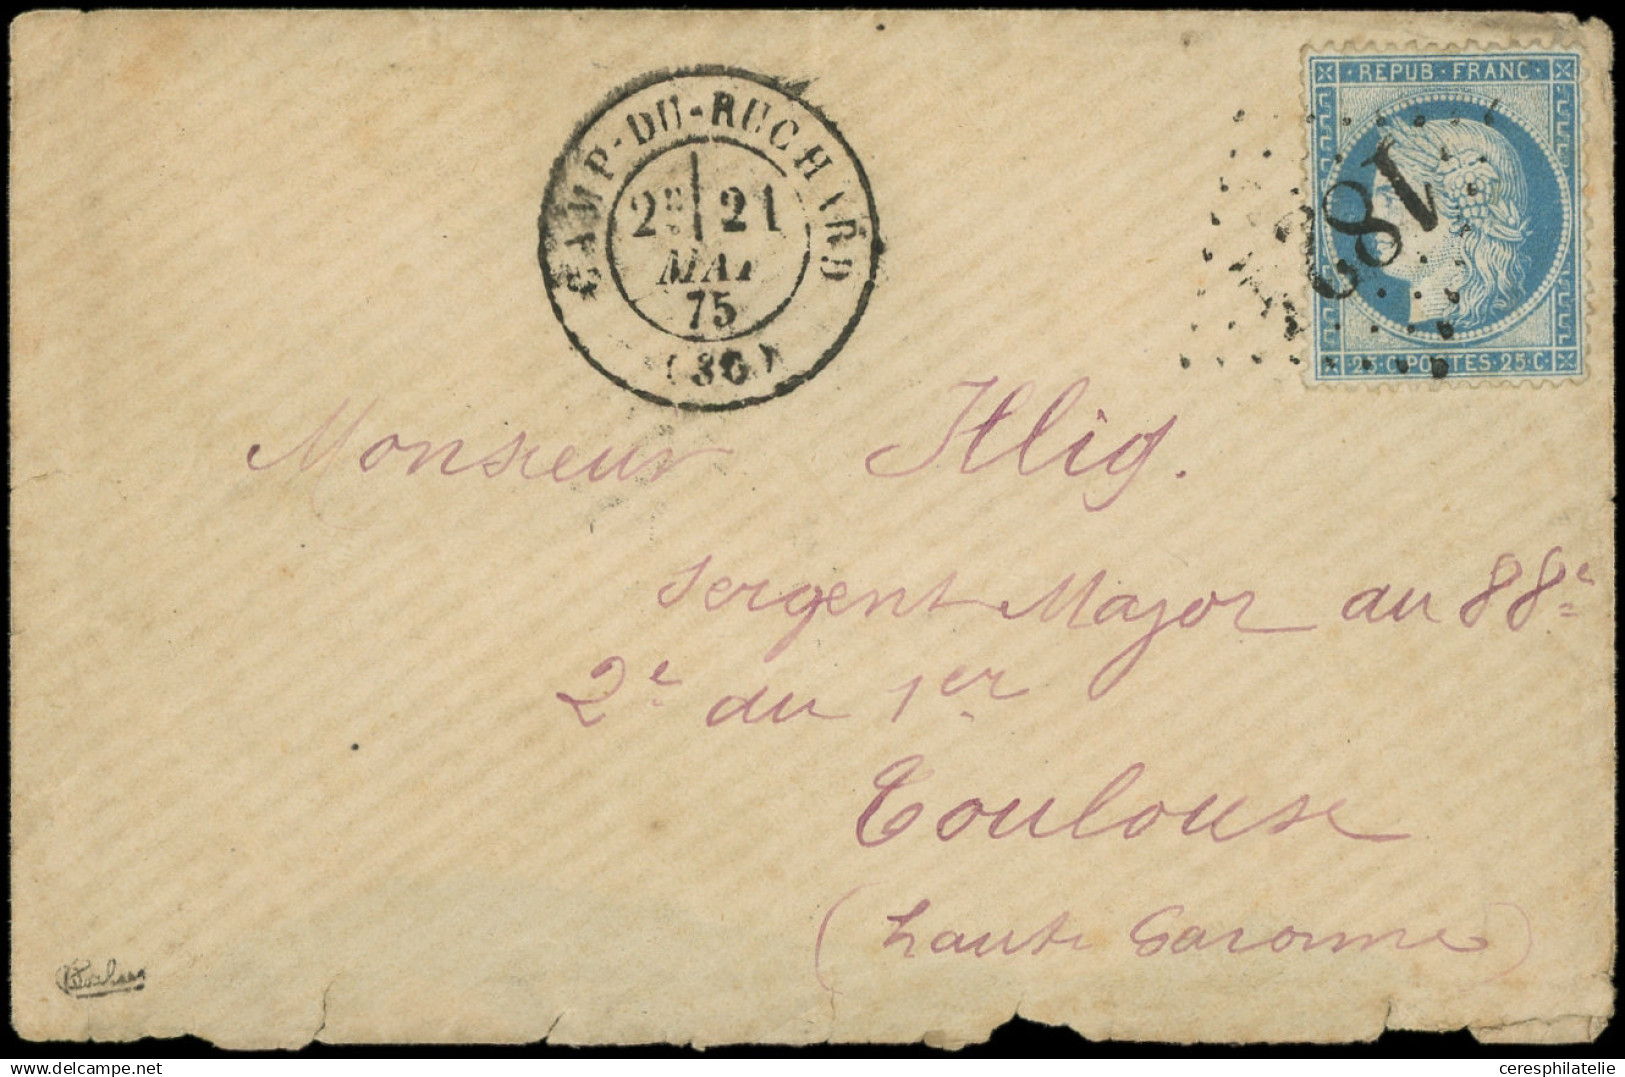 REPUB · FRANC
CAMP-DU-RUCHARD
2E 21
MAI
75
(36)
25 · C · POSTES · 25 · C
Monsieur Illig.
Sergent Major au 88e
2e du 1er
Toulouse
(haute Garonne)
ceresphilatelie